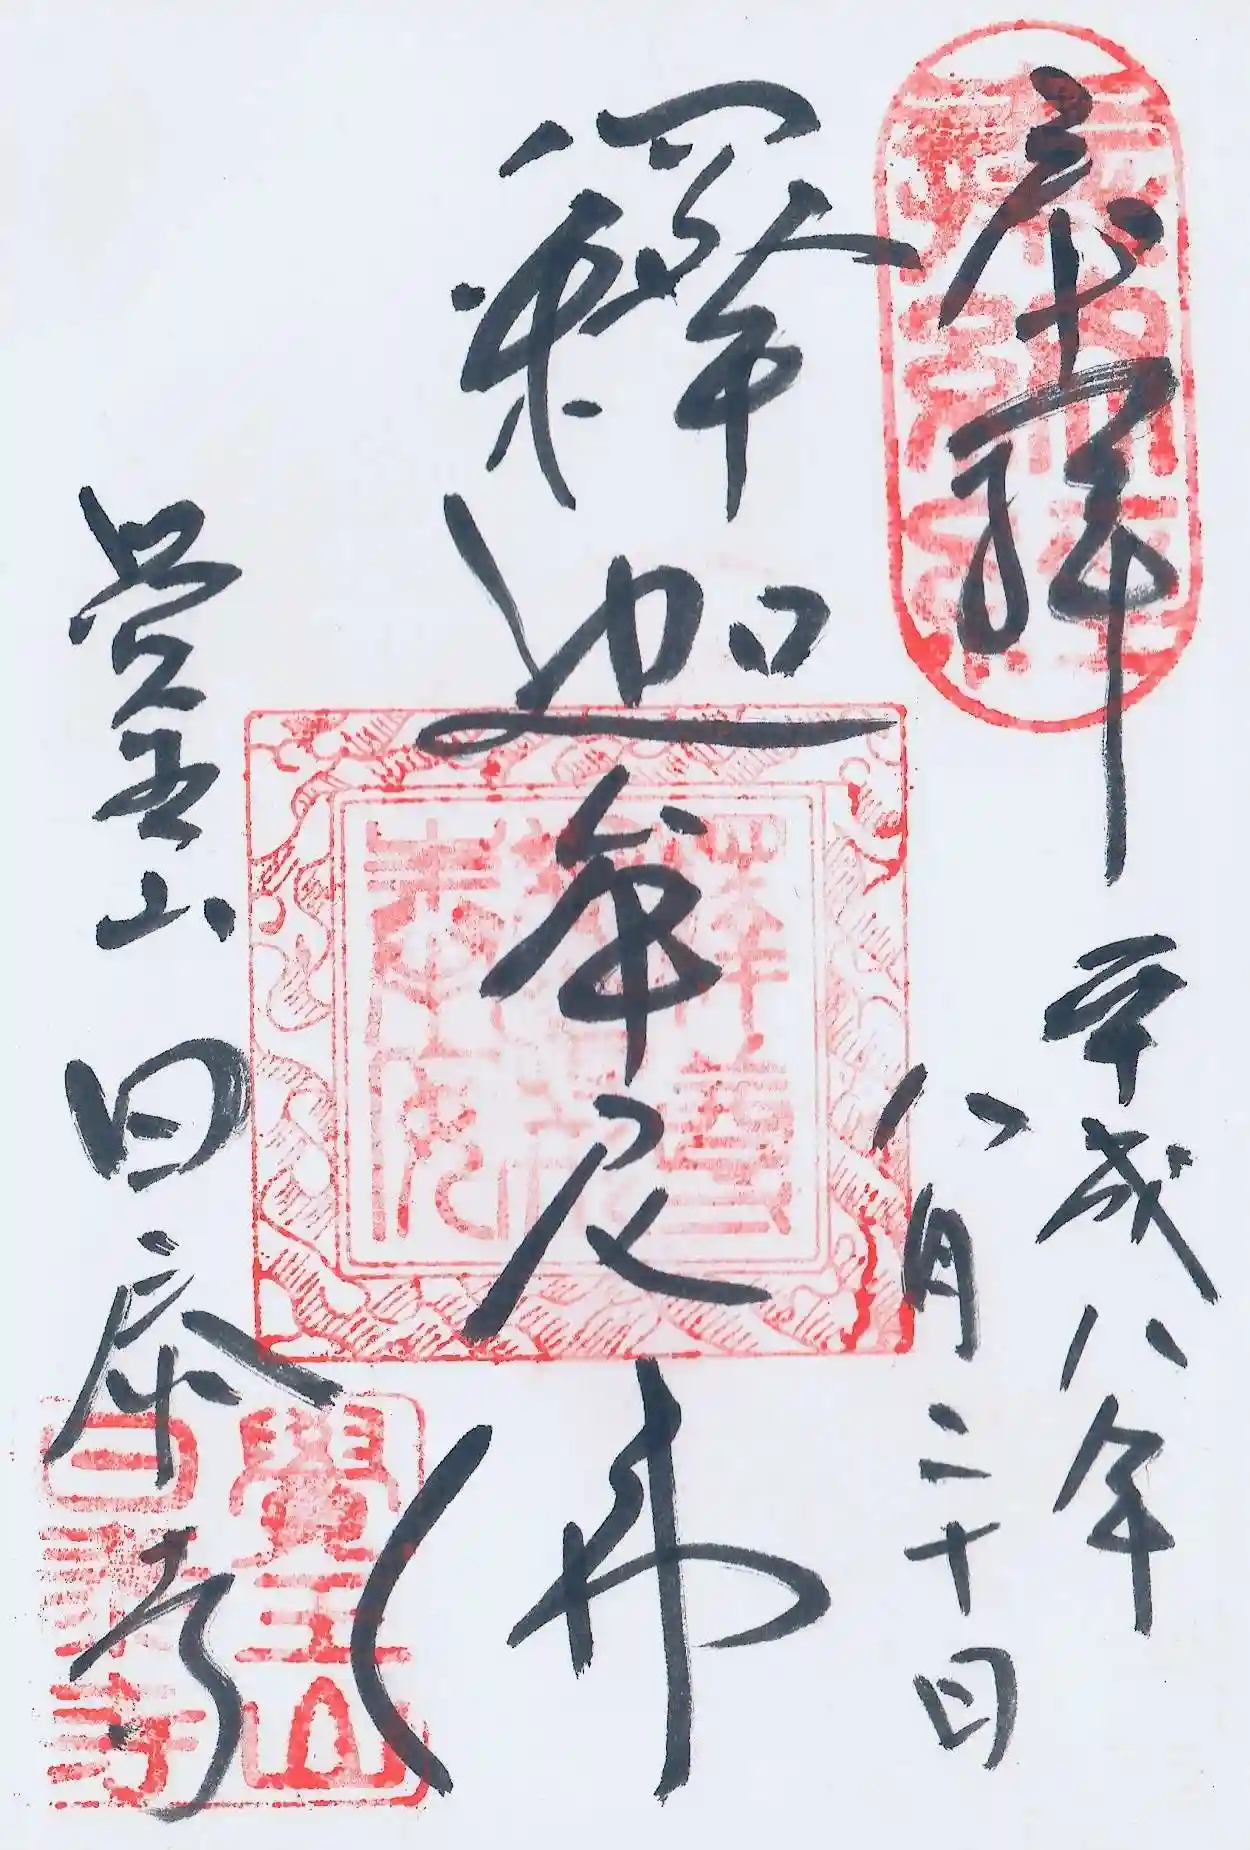 奉拜
平成八年
八月二十日
釋迦牟尼佛
覚王山 日泰寺
覺王山
日泰寺